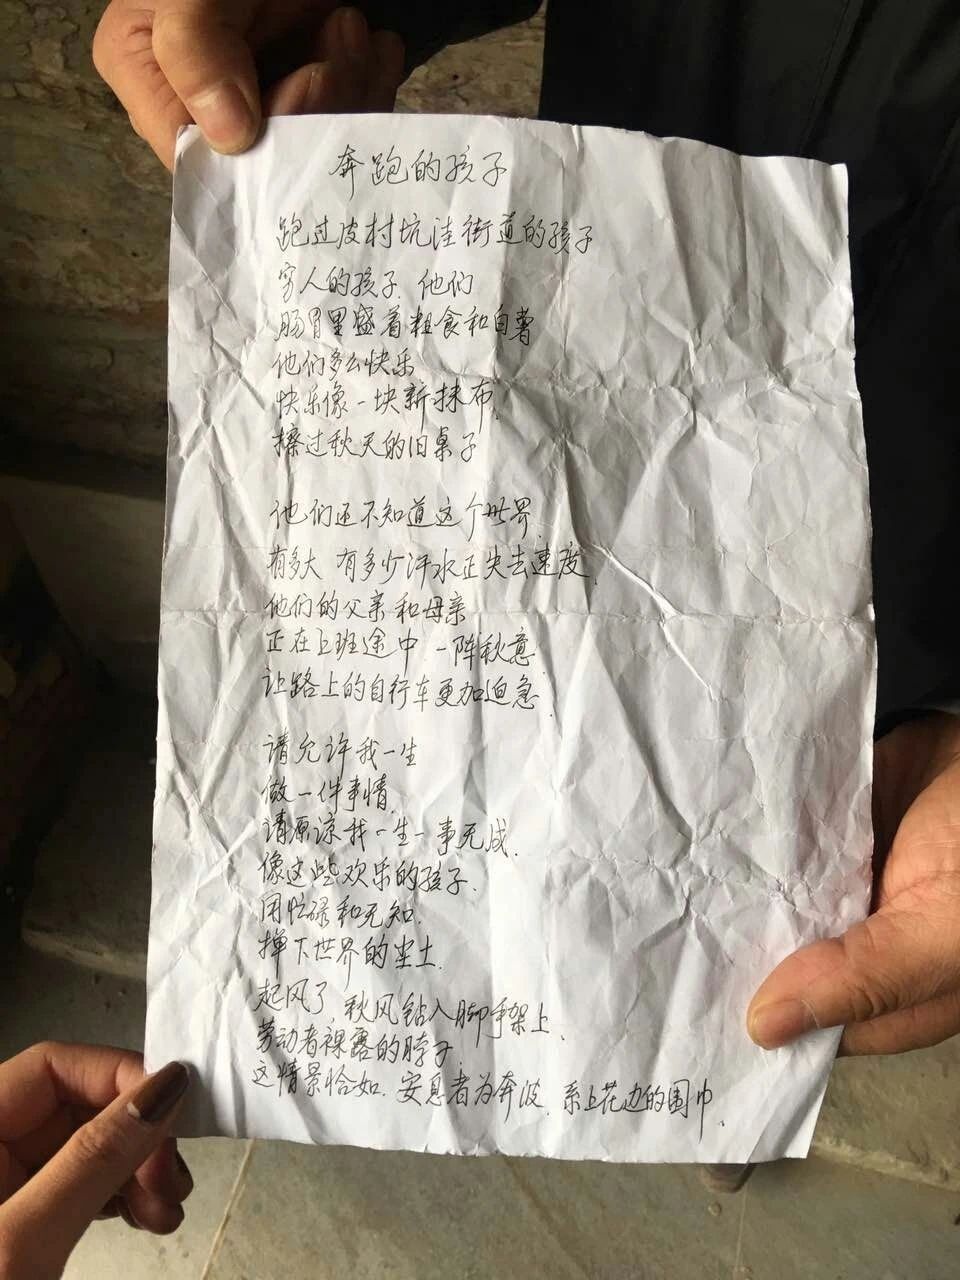 奔跑的孩子
跑过皮村坑洼街道的孩子
穷人的孩子.他们
肠胃里盛着粗食和白薯
他们多么快乐
快乐像一块新抹布.
擦过秋天的旧桌子
他们还不知道这个世界.
有多大 有多少汗水正失去速度.
他们的父亲和母亲
正在上班途中 一阵秋意
让路上的自行车更加迫急.
请允许我一生
做一件事情.
请原谅我一生一事无成.
像这些欢乐的孩子.
用忙碌和无知.
掸下世界的尘土.
起风了,秋风钻入脚手架上.
劳动者裸露的脖子.
这情景恰如.安息者为奔波.系上花边的围巾、